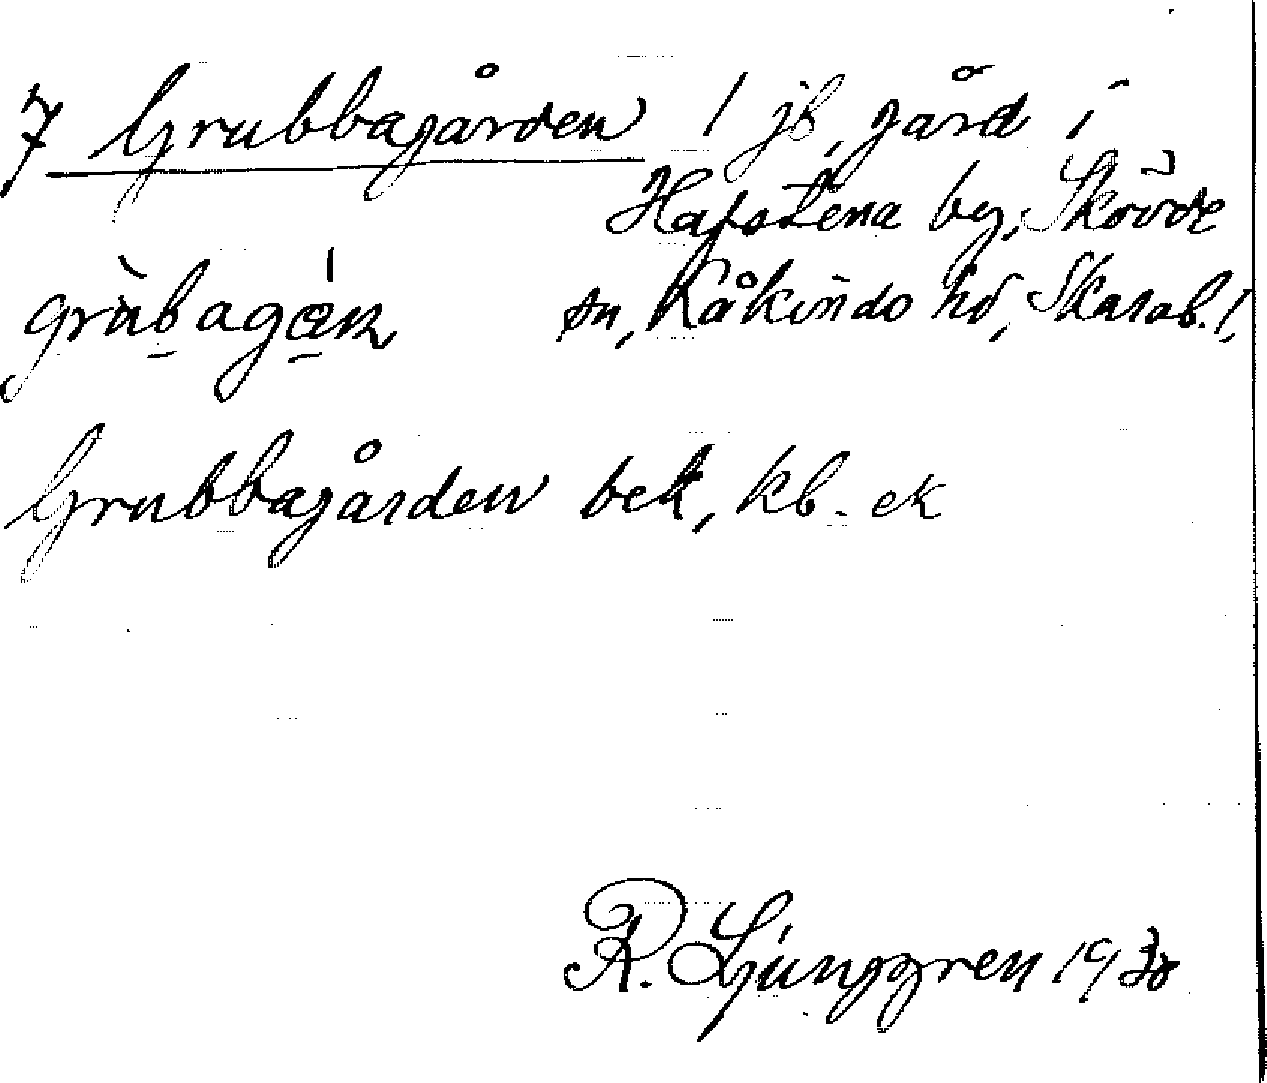 7 Grubbagården 1 jb, gård i
Hasstena by, Skövde
grùbagán sn, Kåkinds hd, Skarab. l.
Grubbagården bek, kb. ek
R. Ljunggren 1930